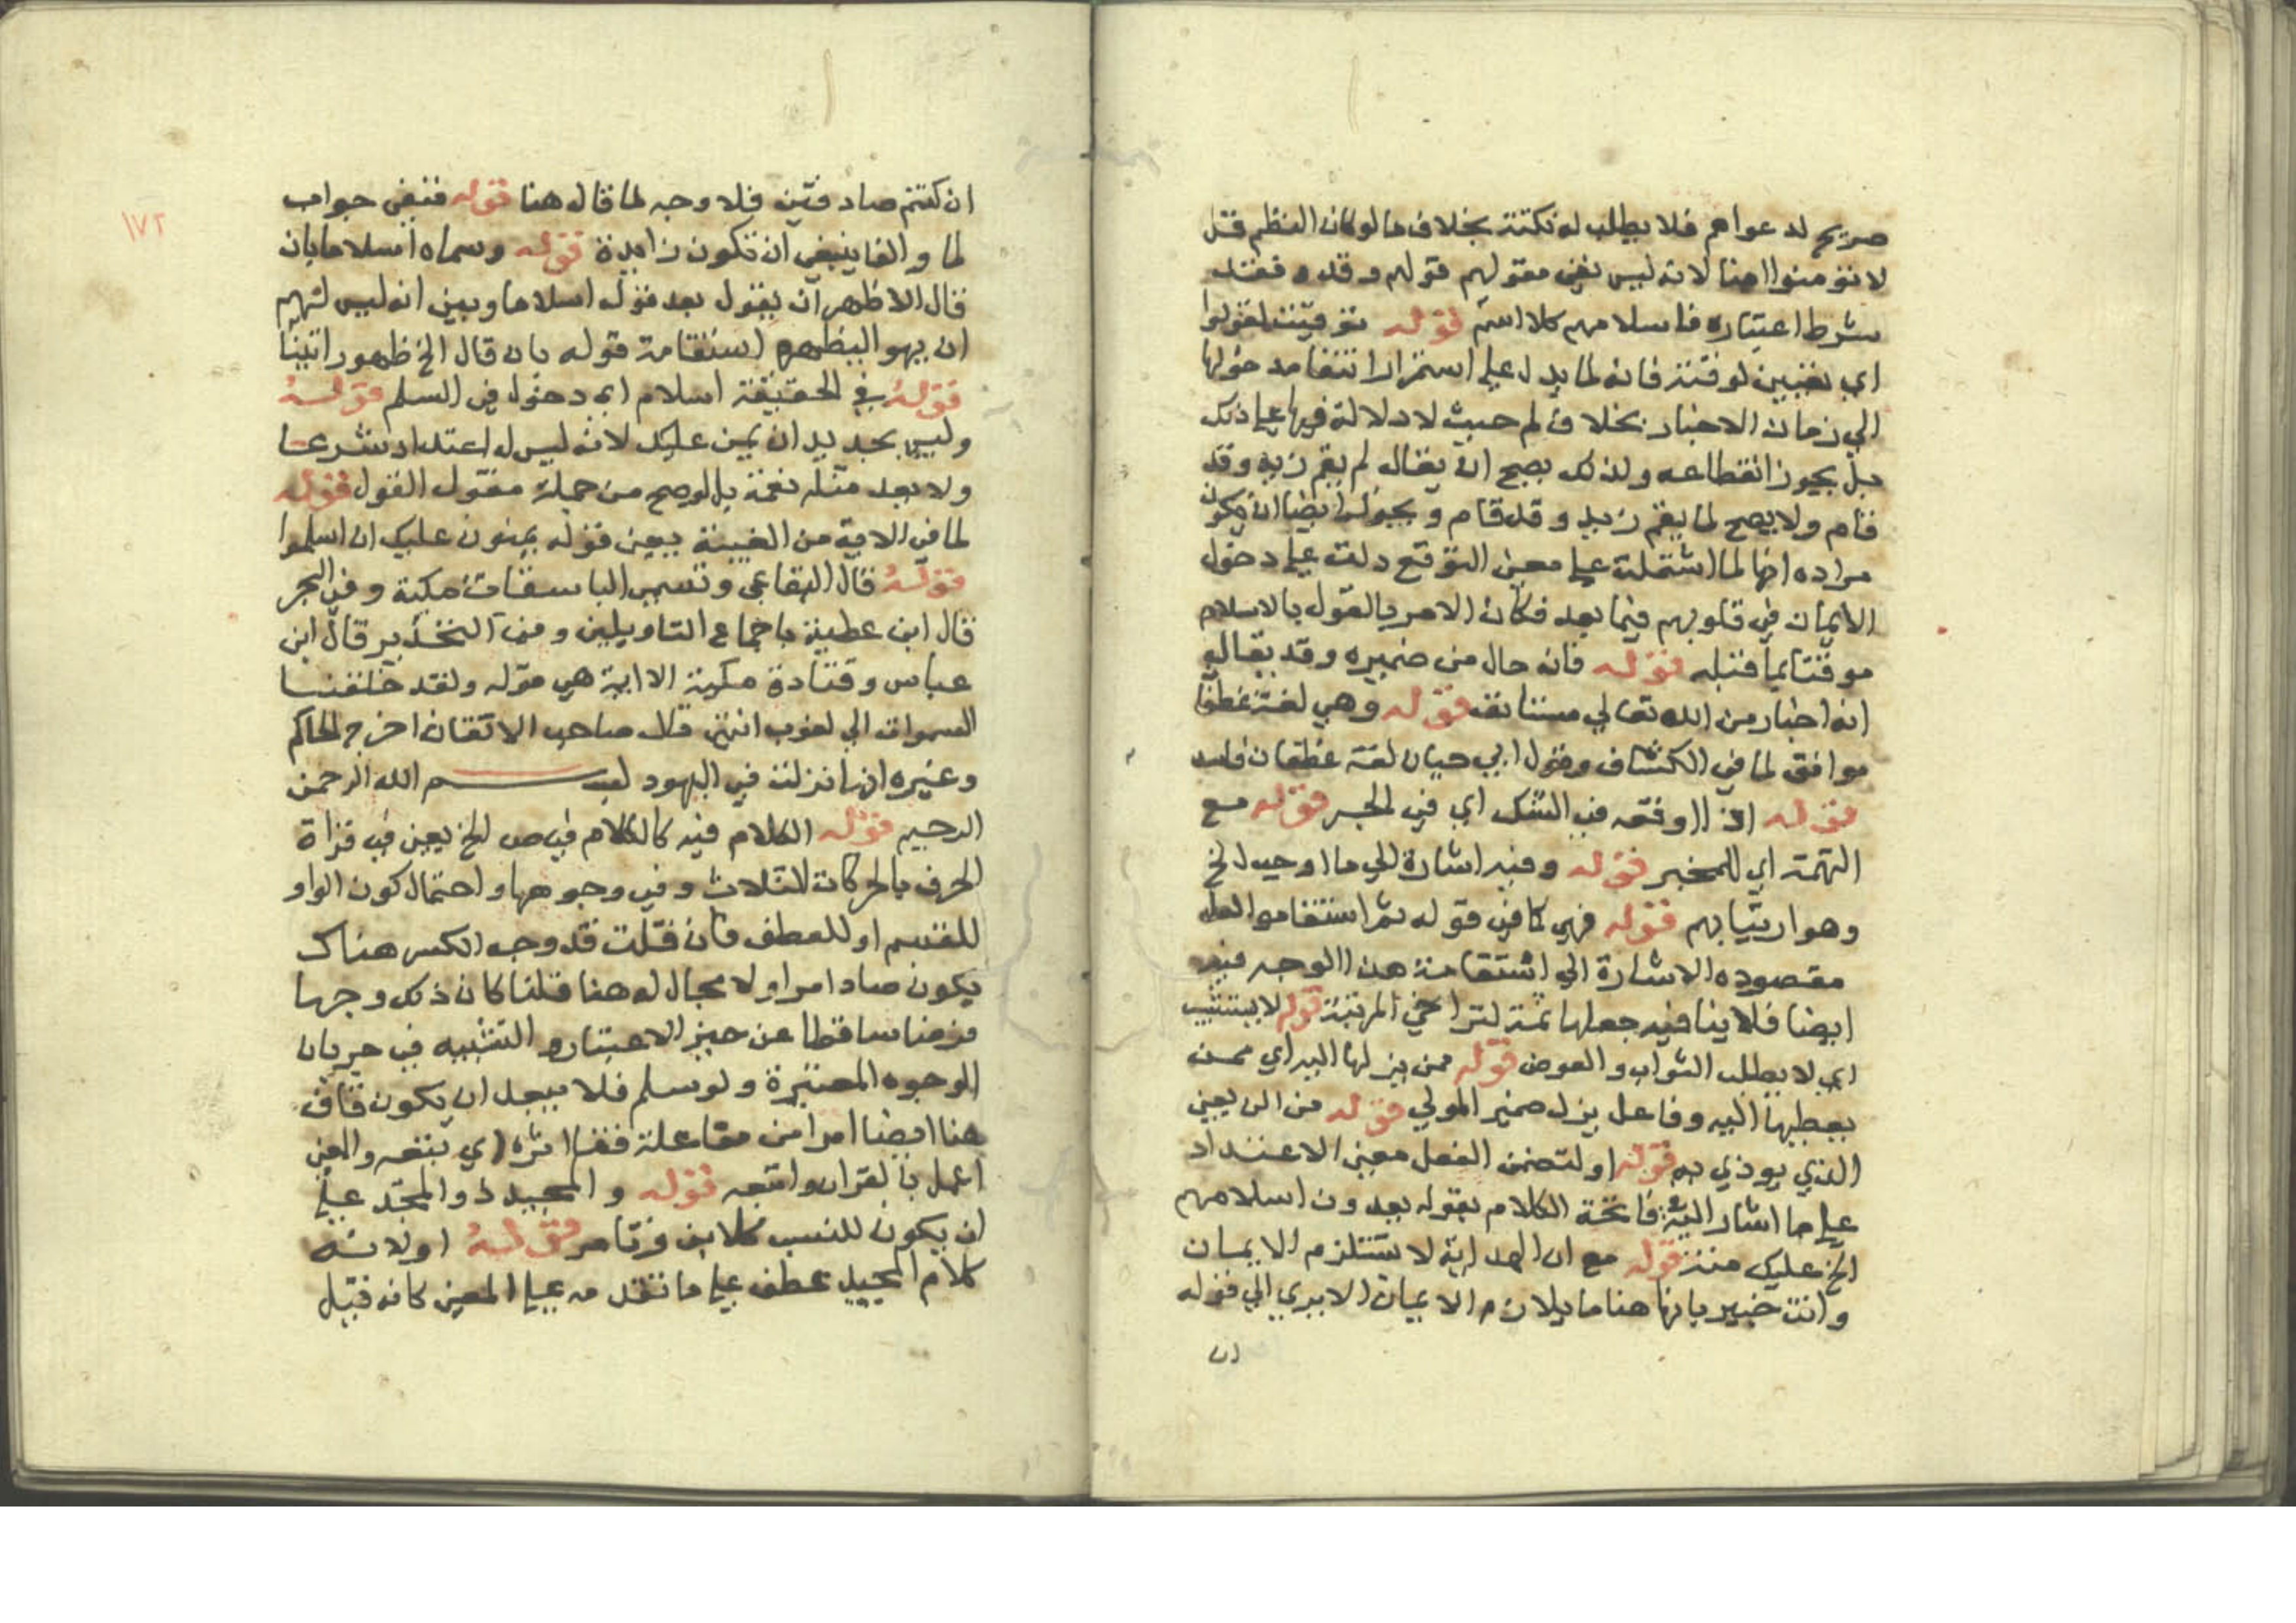 صريح لدعواهم فلا يطلب له نكتة بخلاف ما لو كان النظم قل
لا تؤمنوا امنا لانه ليس نفي مقولهم قوله وقد فقد
شرط اعتباره فاسلامهم كلا اسلم قوله توقيت لقولوا
اي تعيين لوقته فانه لما يدل علي استمرار انتفا مدخولها
الي زمان الاخبار بخلاف لم حيث لا دلالة فيها علي ذلك
بل يجوز انقطاعه ولذلك يصح ان يقال لم يقم زيد وقد
قام ولا يصح لما يقم زيد وقد قام ويجوز ايضا ان يكون
مراده انها لما اشتملت علي معني التوقع دلت علي دخول
الايمان في قلوبهم فيما بعد فكان الامر بالقول بالاسلام
موقتا بما قبله قوله فانه حال من ضميره وقد يقال
انه اخبار من الله تعالي مستانف قوله وهي لغة غطفا
موافق لما في الكشاف وقول ابي حيان لغة غطفان واسد
قوله اذا اوقعه في الشك اي في الخبر قوله مع
التهمة اي للمخبر قوله وفيه اشارة الي ما اوجب الخ
وهو ارتيابهم قوله فهي كما في قوله ثم استقاموا لعل
مقصوده الاشارة الي استقامة هذا الوجه فيه
ايضا فلا ينافيه جعلها ثمة لتراخي المرتبة قوله لا يستثيب
اي لا يطلب الثواب والعوض قوله ممن يزلها اليه اي ممن
يعطيها اليه وفاعل يزل ضمير المولي قوله من المن يعني
الذي يوذي به قوله او لتضمن الفعل معني الاعتداد
علي ما اشار اليه فاتحة الكلام بقوله يعدون اسلامهم
الخ عليك منة قوله مع ان الهداية لا تستلزم الايمان
وانت خبير بانها هنا ما يلازم الايمان الا يري الي قوله
ان
١٧٢
ان كنتم صادقين فلا وجه لما قال هنا قوله فنفي جواب
لما والفا ينبغي ان تكون زايدة قوله وسماه اسلاما بان
قال الاظهر ان يقول بعد قوله اسلاما وبين انه ليس لهم
ان يهوا ليظهر استقامة قوله بان قال الخ ظهورا بينا
قوله في الحقيقة اسلام اي دخول في السلم قوله
وليس بجديد ان يمن عليك لانه ليس له اعتداد شرعا
ولا يعد مثله نعمة بل لو صح من جملة مقول القول قوله
لما في الاية من الغيبة يعني قوله يمنون عليك ان اسلموا
قوله قال البقاعي وتسمي الباسقات مكية وفي البحر
قال ابن عطية باجماع التاويلين ومن التحرير قال ابن
عباس وقتادة مكية الا اية هي قوله ولقد خلقنا
السموات الي لغوب انتهي قال صاحب الاتقان اخرج الحاكم
وغيره انها نزلت في اليهود بسم الله الرحمن
الرحيم قوله الكلام فيه كالكلام في ص الخ يعني في قراة
الحرف بالحركات الثلاث وفي وجوهها واحتمال كون الواو
للقسم او للعطف فان قلت قد وجه الكسر هناك
بكون صاد امرا ولا مجال له هنا قلنا كان ذلك وجها
مزيفا ساقطا عن حيز الاعتبار والتشبيه في جريان
الوجوه المعتبرة ولو سلم فلا يبعد ان يكون قاف
هنا ايضا امرا من مفاعلة قفا اثره اي تبعه والمعني
اعمل بالقران واتبعه قوله والمجيد ذو المجد علي
ان يكون للنسب كلابن وتامر قوله اولانه
كلام المجيد عطف علي ما تقدمه علي المعني كانه قيل